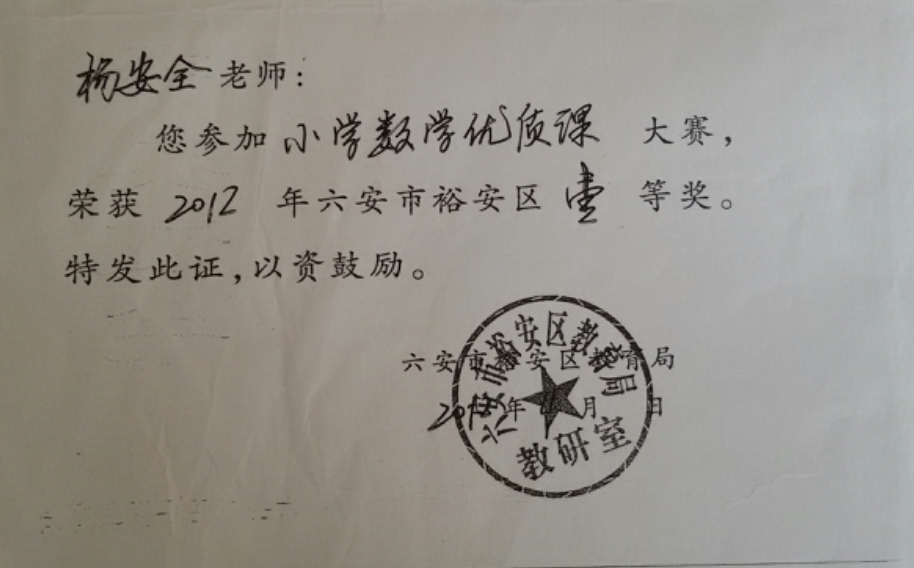 杨安全老师：
您参加小学数学优质课大赛，
荣获2012年六安市裕安区壹等奖。
特发此证，以资鼓励。
六安市裕安区教育局
年 月 日
六安市裕安区教育局
教研室